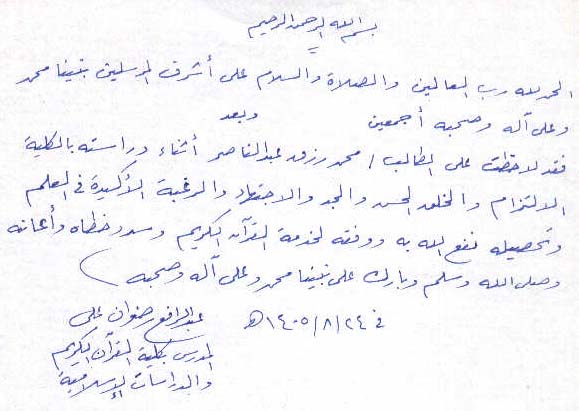 بسم الله الرحمن الرحيم
الحمد لله رب العالمين والصلاة والسلام على أشرف المرسلين نبينا محمد
وعلى آله وصحبه أجمعين وبعد
فقد لاحظت على الطالب / محمد رزق عبدالناصر أثناء دراسته بالكلية
الالتزام والخلق الحسن والجد والاجتهاد والرغبة الأكيدة في العلم
وتحصيله نفع الله به ووفقه لخدمة القرآن الكريم وسدد خطاه وأعانه
وصلى الله وسلم وبارك على نبينا محمد وعلى آله وصحبه
في ١٤٠٥/٨/٢٤هـ عبدالرافع رضوان على
المدرس بكلية القرآن الكريم
والدراسات الإسلامية